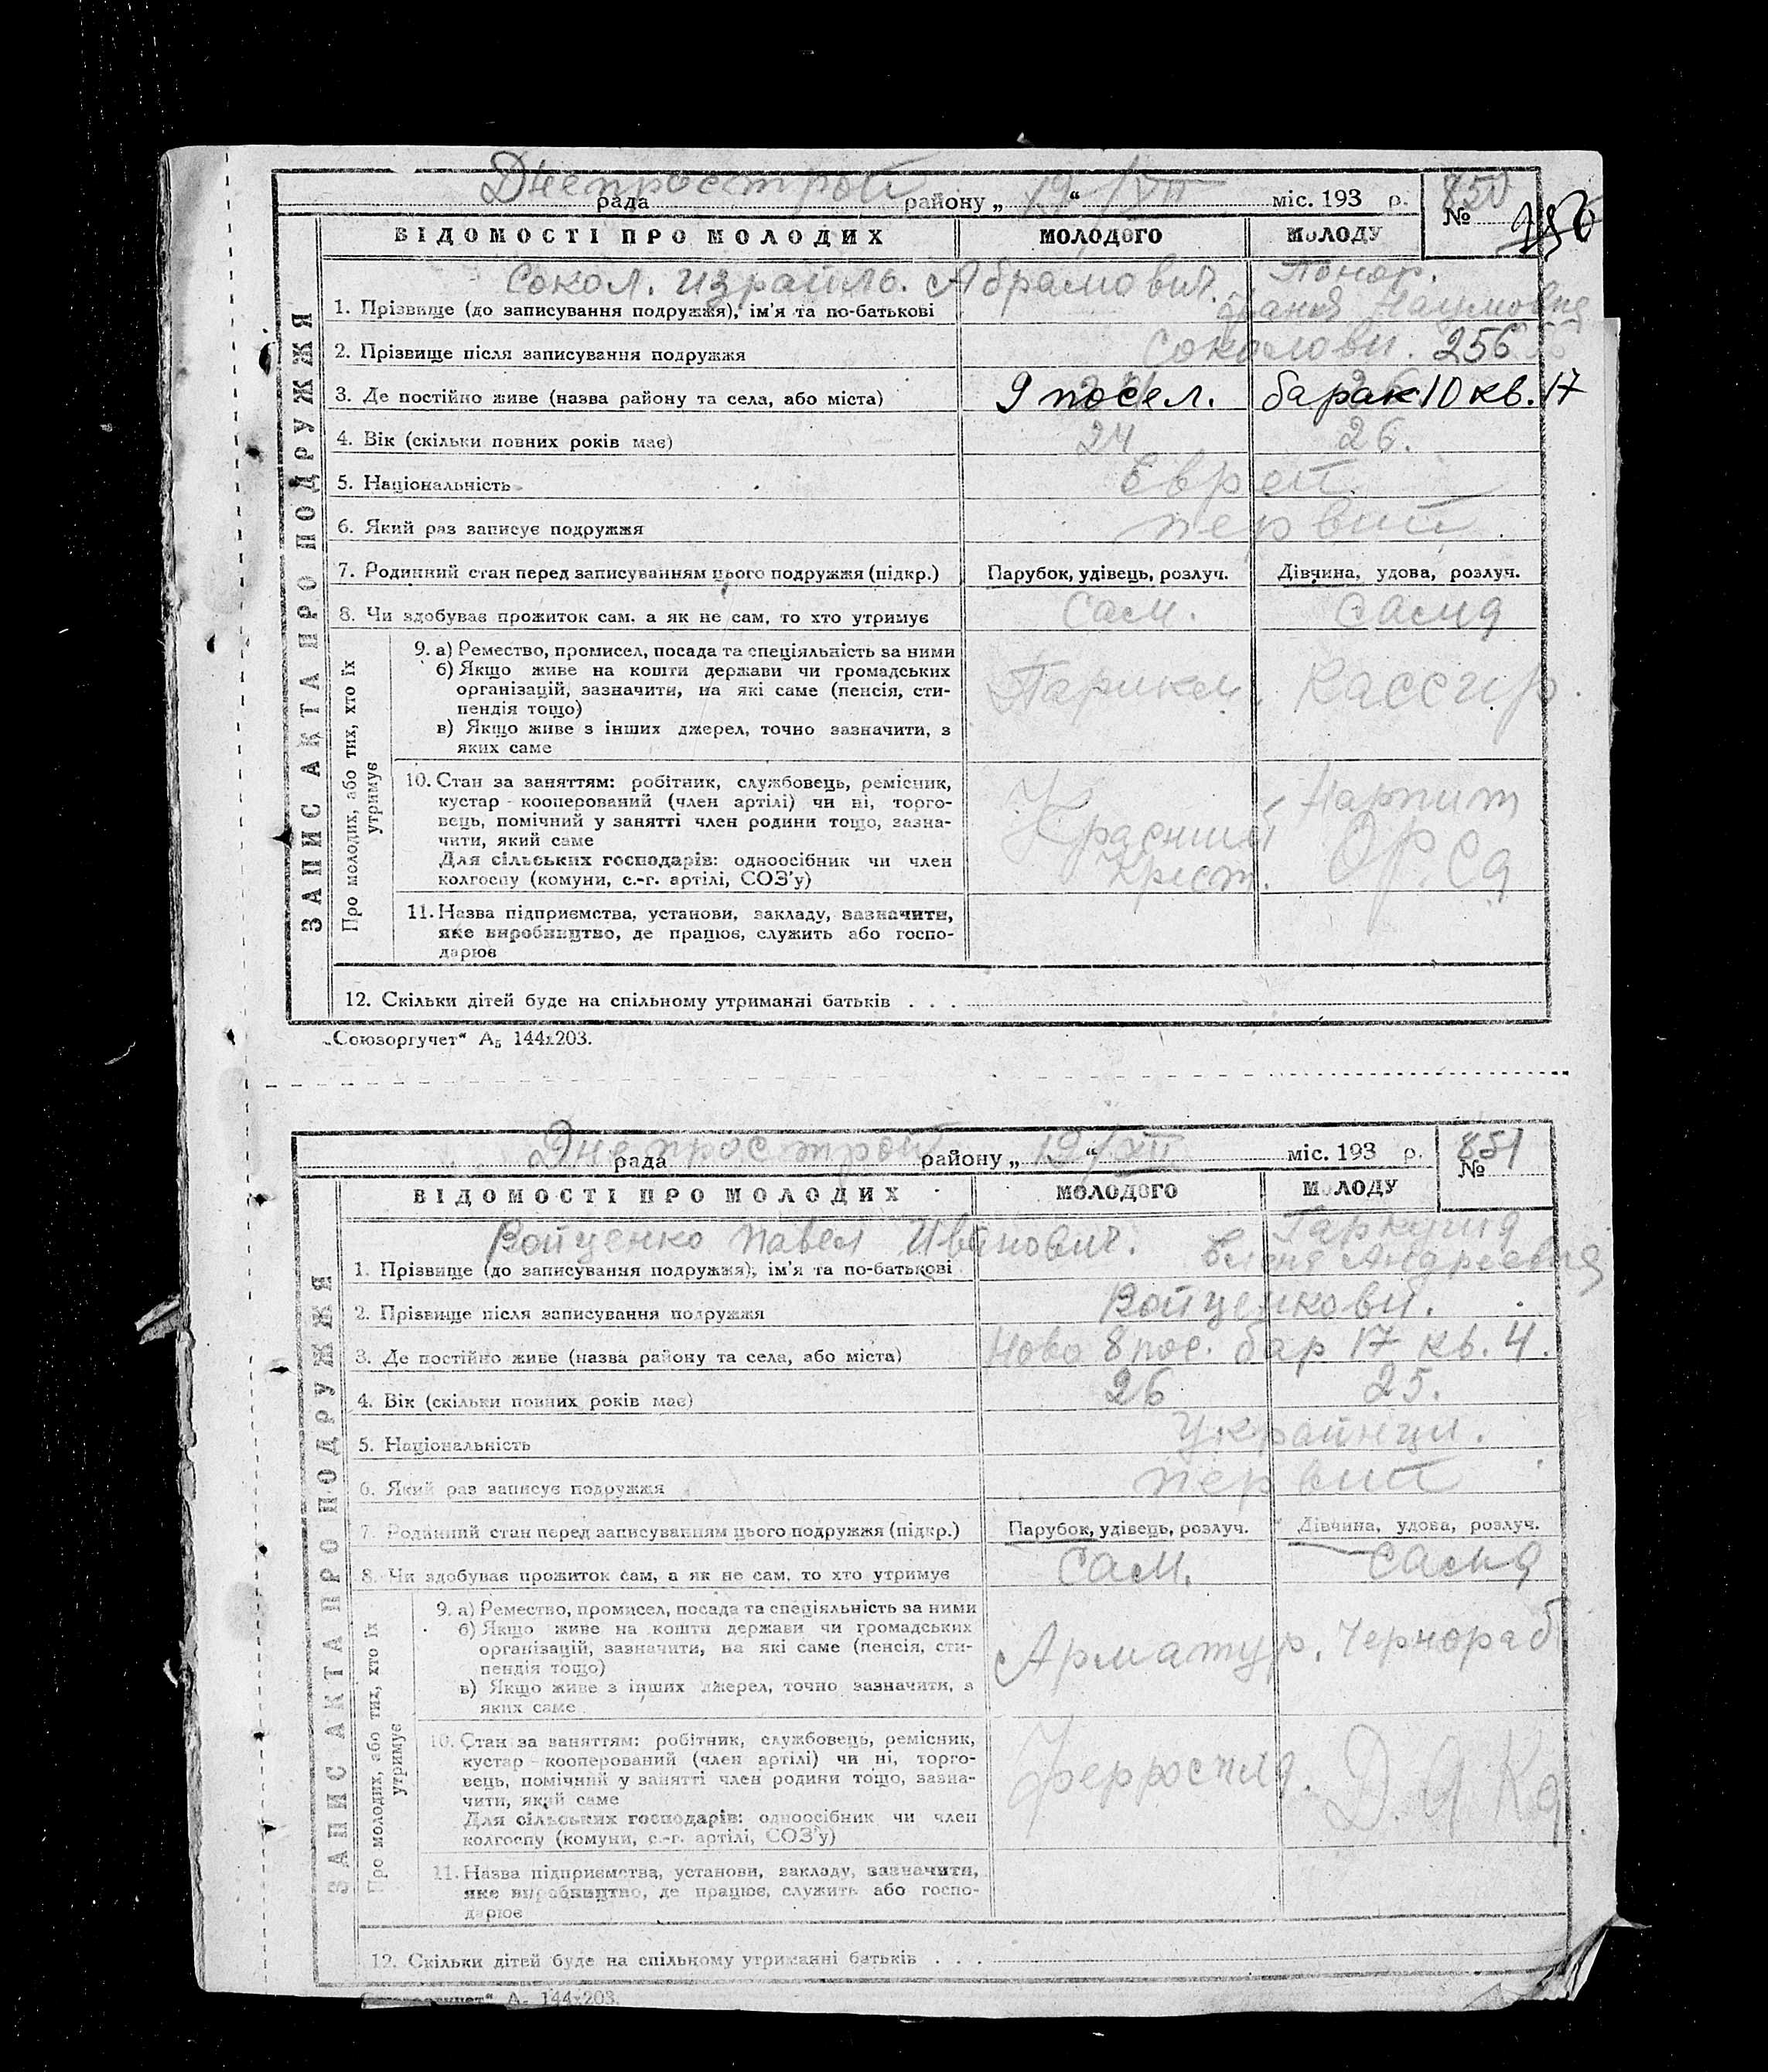 Днепрострой
рада району „ 19 “ /VII міс. 193 р. 850
№
ВІДОМОСТІ ПРО МОЛОДИХ МОЛОДОГО МОЛОДУ
Сокол. Израиль. Абрамович. Понор.
1. Прізвище (до записування подружжя), ім'я та по-батькові Наумовна
2. Прізвище після записування подружжя Соколови. 256
3. Де постійно живе (назва району та села, або міста) 9 посел. барак 10 кв. 17
4. Вік (скільки повних років має) 24 26.
5. Національність Еврей
6. Який раз записує подружжя первий
7. Родинний стан перед записуванням цього подружжя (підкр.) Парубок, удівець, розлуч. Дівчина, удова, розлуч.
8. Чи здобуває прожиток сам, а як не сам, то хто утримує Сам. Сама
9. а) Ремество, промисел, посада та спеціяльність за ними
б) Якщо живе на кошти держави чи громадських
організацій, зазначити, на які саме (пенсія, сти-
пендія тощо) Парикм. Кассир.
в) Якщо живе з інших джерел, точно зазначити, з
яких саме
10. Стан за заняттям: робітник, службовець, ремісник,
кустар - кооперований (член артілі) чи ні, торго- Нарпит
вець, помічний у занятті член родини тощо, зазна-
чити, який саме Красний ОРСа
Для сільських господарів: одноосібник чи член
колгоспу (комуни, с.-г. артілі, СОЗ'у) Крест.
11. Назва підприємства, установи, закладу, зазначити,
яке виробництво, де працює, служить або госпо-
дарює
12. Скільки дітей буде на спільному утриманні батьків . . .
ЗАПИС АКТА ПРО ПОДРУЖЖЯ
Про молодих, або тих, хто їх
утримує
„Союзоргучет“ А₅ 144х203.
Днепрострой
рада району „ 19 “ /VII міс. 193 р. 851
№
ВІДОМОСТІ ПРО МОЛОДИХ МОЛОДОГО МОЛОДУ
Войценко Павел Иванович. Гаркуша
1. Прізвище (до записування подружжя), ім'я та по-батькові Елена Андреевна
2. Прізвище після записування подружжя Войценкови.
3. Де постійно живе (назва району та села, або міста) Ново 8 пос. бар 17 кв. 4.
4. Вік (скільки повних років має) 26 25.
5. Національність Украинци.
6. Який раз записує подружжя первий
7. Родинний стан перед записуванням цього подружжя (підкр.) Парубок, удівець, розлуч. Дівчина, удова, розлуч.
8. Чи здобуває прожиток сам, а як не сам, то хто утримує Сам. Сама
9. а) Ремество, промисел, посада та спеціяльність за ними
б) Якщо живе на кошти держави чи громадських
організацій, зазначити, на які саме (пенсія, сти-
пендія тощо) Арматур. Чернораб
в) Якщо живе з інших джерел, точно зазначити, з
яких саме
10. Стан за заняттям: робітник, службовець, ремісник,
кустар - кооперований (член артілі) чи ні, торго-
вець, помічний у занятті член родини тощо, зазна-
чити, який саме Ферросплд.
Для сільських господарів: одноосібник чи член
колгоспу (комуни, с.-г. артілі, СОЗ'у)
11. Назва підприємства, установи, закладу, зазначити,
яке виробництво, де працює, служить або госпо-
дарює
12. Скільки дітей буде на спільному утриманні батьків . . .
ЗАПИС АКТА ПРО ПОДРУЖЖЯ
Про молодих, або тих, хто їх
утримує
„Союзоргучет“ А₅ 144х203.